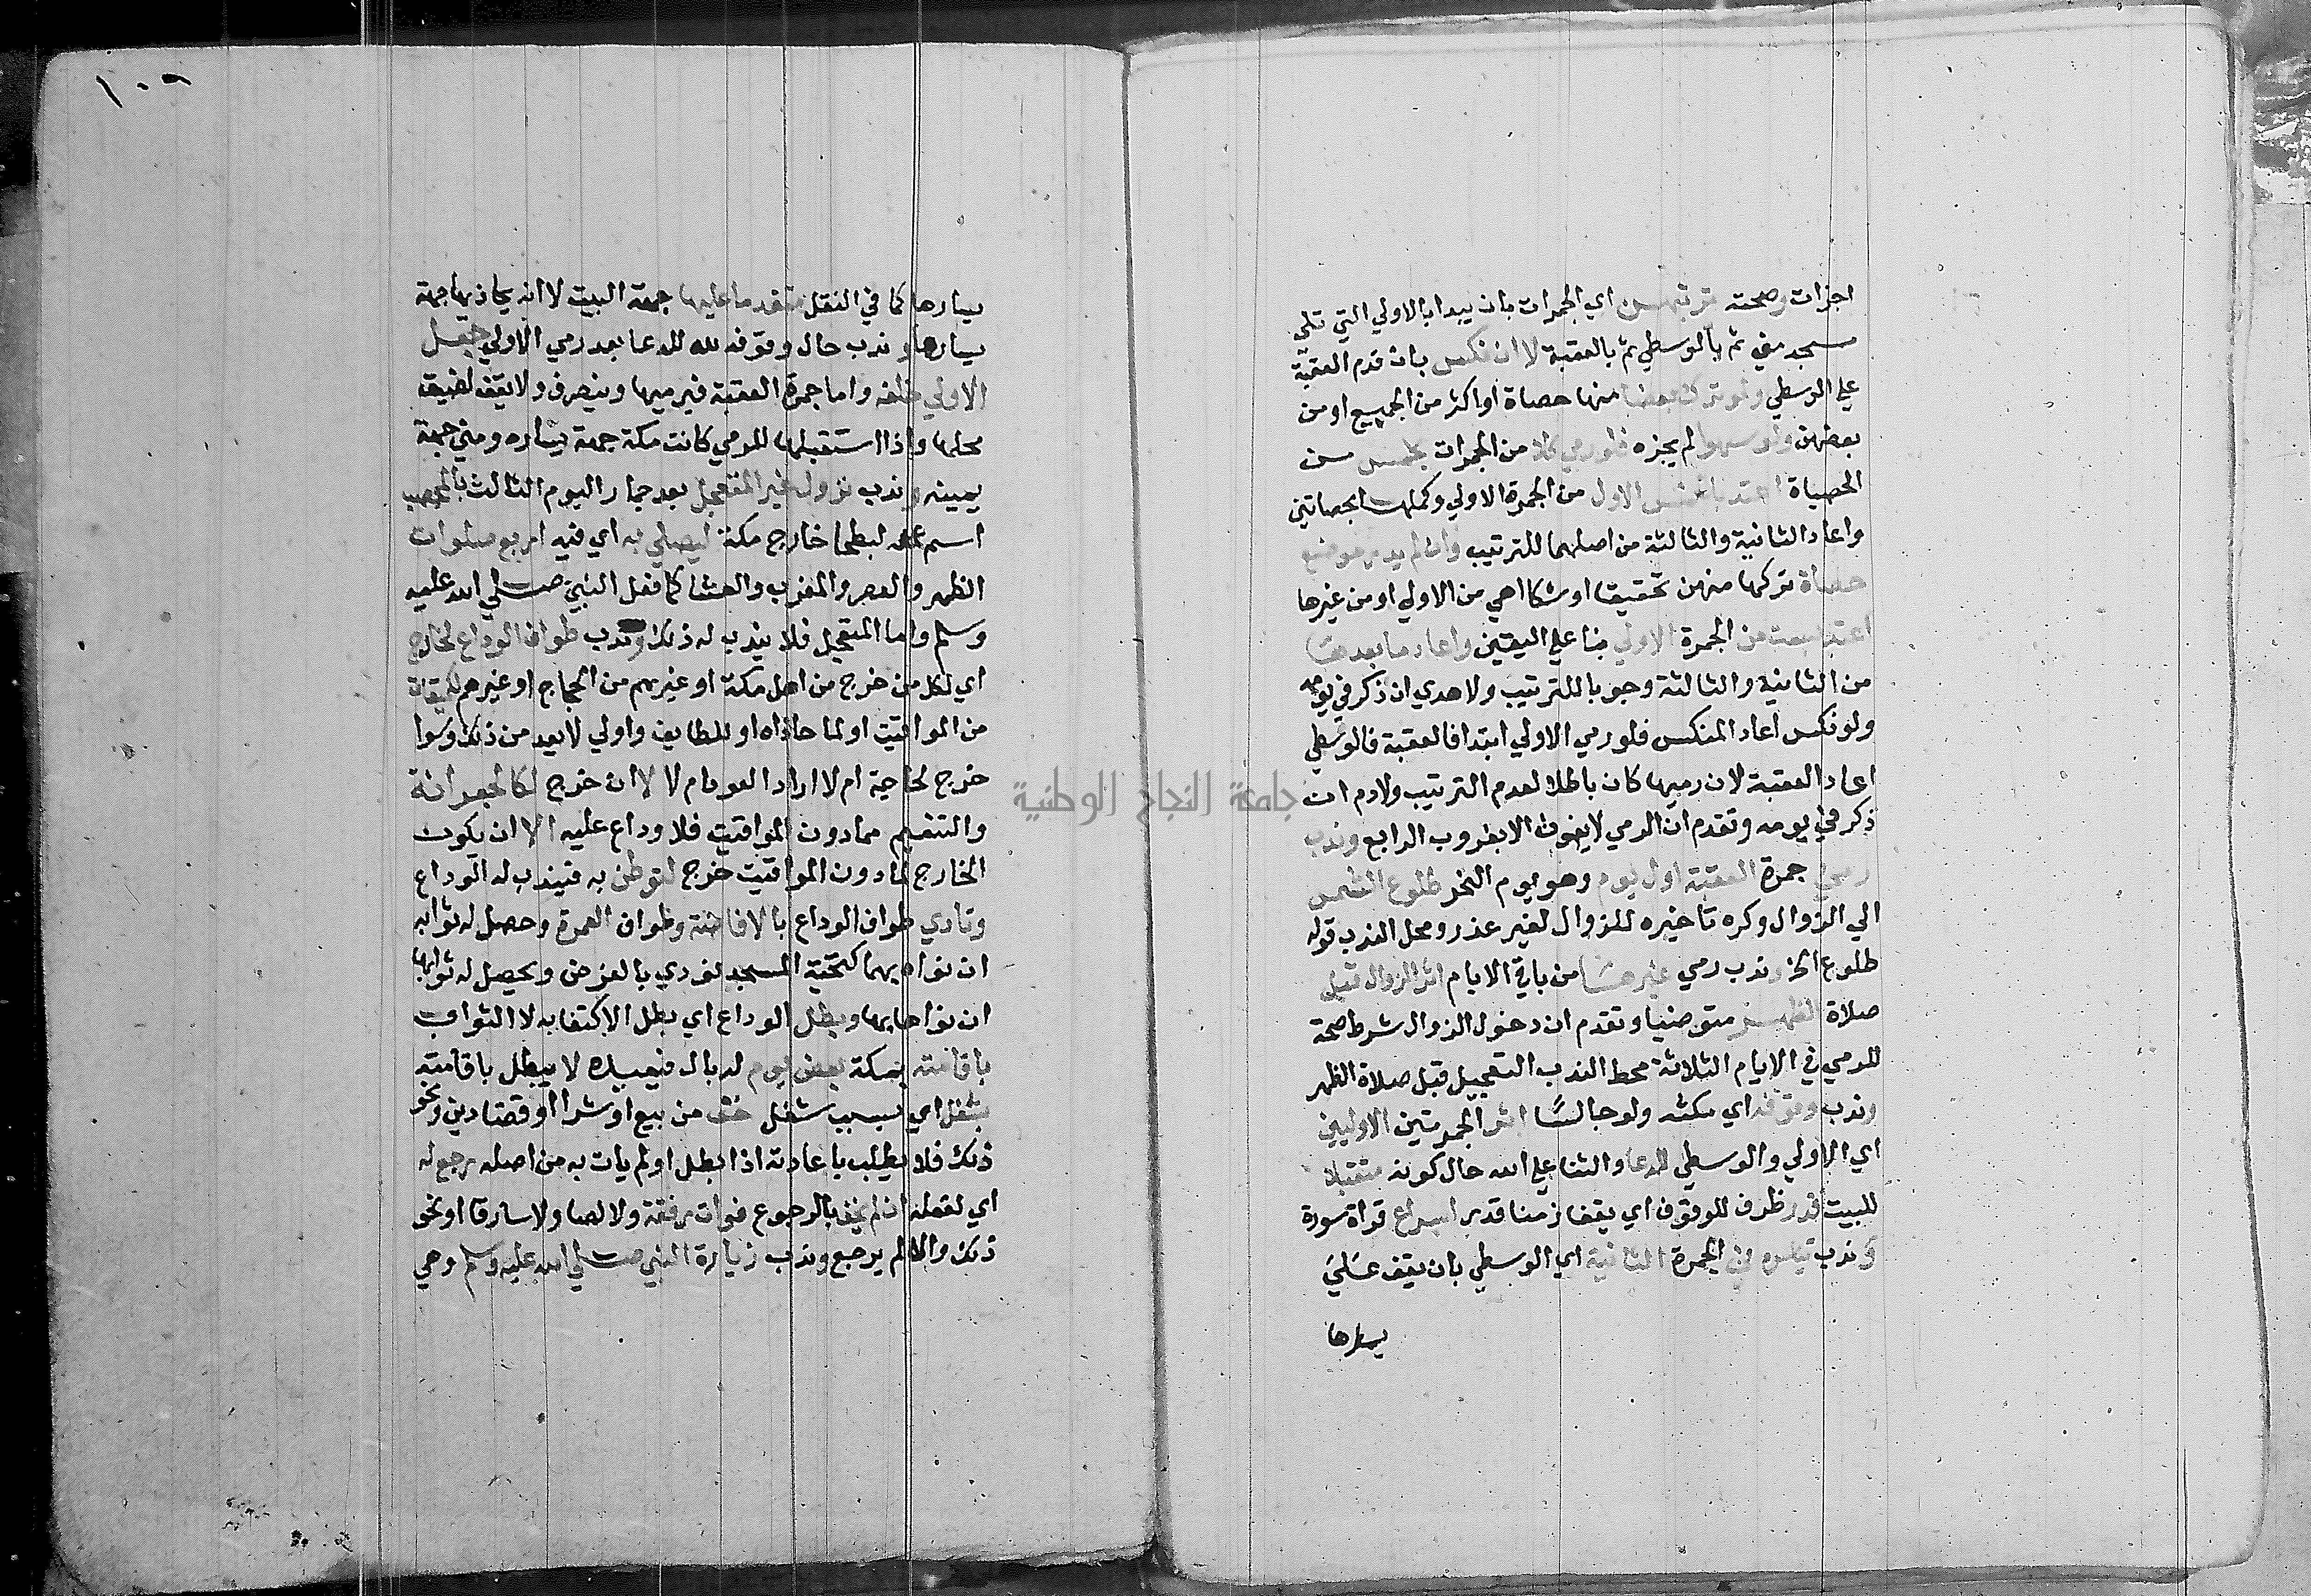 اجزات وصحته بترتبهن اي الجمرات بان يبدا بالاولي التي تلي
مسجد مني ثم بالوسطي ثم بالعقبة لا ان نكس بان قدم العقبة
علي الوسطي ولو ترك بعضا منها حصاة او اكثر من الجميع او من
بعضهن ولو سهوا لم يجزه فلو رمي كلا من الجمرات بخمس من
الحصباة اعتد بالخمس الاول من الجمرة الاولي وكملها بحصاتين
واعاد الثانية والثالثة من اصلهما للترتيب وان لم يدر موضع
حصاة تركها منهن تحقيقا او شكا اهي من الاولي او من غيرها
اعتد بست من الجمرة الاولي بنا علي اليقين واعاد ما بعدها
من الثانية والثالثة وجوبا للترتيب ولا هدي ان ذكر في يومه
ولو نكس اعاد المنكس فلو رمي الاولي ابتدا فالعقبة فالوسطي
اعاد العقبة لان رميها كان باطلا لعدم الترتيب ولا دم ان
ذكر في يومه وتقدم ان الرمي لا يفوت الا بغروب الرابع وندب
رمي جمرة العقبة اول يوم وهو يوم النحر طلوع الشمس
الي الزوال وكره تاخيره للزوال لغير عذر ومحل الندب قوله
طلوع الخ وندب رمي غيرها من باقي الايام اثر الزوال قبل
صلاة الظهر متوضيا وتقدم ان دخول الزوال شرط صحة
للرمي في الايام الثلاثة محط الندب التعجيل قبل صلاة الظهر
وندب وقوفه اي مكثه ولو جالسا اثر الجمرتين الاوليين
اي الاولي والوسطي للدعا والثنا علي الله حال كونه متقبلا
للبيت قدر ظرف للوقوف اي يقف زمنا قدر اسراع قراة سورة
وندب تياسره في الجمرة الثانية اي الوسطي بان يقف علي
يسارها
١٠٩
يسارها كما في النقل متقدما عليها جهة البيت لا انه يحاذيها جهة
يسارها وندب حال وقوفه لله للدعا بعد رمي الاولي جعل
الاولي خلفه واما جمرة العقبة فيرميها وينصرف ولا يقف لضيق
محلها واذا استقبلها للرمي كانت مكة جهة يساره ومني جهة
يمينه وندب نزول غير المتعجل بعد جمار اليوم الثالث بالمحصب
اسم لبطحا خارج مكة ليصلي به اي فيه اربع صلوات
الظهر والعصر والمغرب والعشا كما فعل النبي صلي الله عليه
وسلم واما المتعجل فلا يندب له ذلك وندب طواف الوداع لخارج
اي لكل من خرج من اهل مكة او غيرهم من الحجاج او غيرهم لميقات
من المواقيت او لما حاذاه او للطايف واولي لابعد من ذلك وسوا
خرج لحاجة ام لا اراد العود ام لا لا ان خرج لكالجعرانة
والتنعيم مما دون المواقيت فلا وداع عليه الا ان يكون
الخارج لما دون المواقيت خرج لتوطن به فيندب له الوداع
وتادي طواف الوداع بالافاضة وطواف العمرة وحصل له ثوابه
ان نواه بهما كتحية المسجد تودي بالفرض ويحصل له ثوابها
ان نواها بها وبطل الوداع اي بطل الاكتفا به لا الثواب
باقامته بمكة بعض يوم له بال فيعيده لا يبطل باقامته
بشغل اي بسبب شغل خف من بيع او شرا او قضا دين ونحو
ذلك فلا يطلب باعادته اذا بطل او لم يات به من اصله رجع له
اي لفعله ان لم يخف بالرجوع فوات رفقة ولا لصا ولا سارقا او نحو
ذلك والا لم يرجع وندب زيارة النبي صلي الله عليه وسلم وهي
جامعة النجاح الوطنية